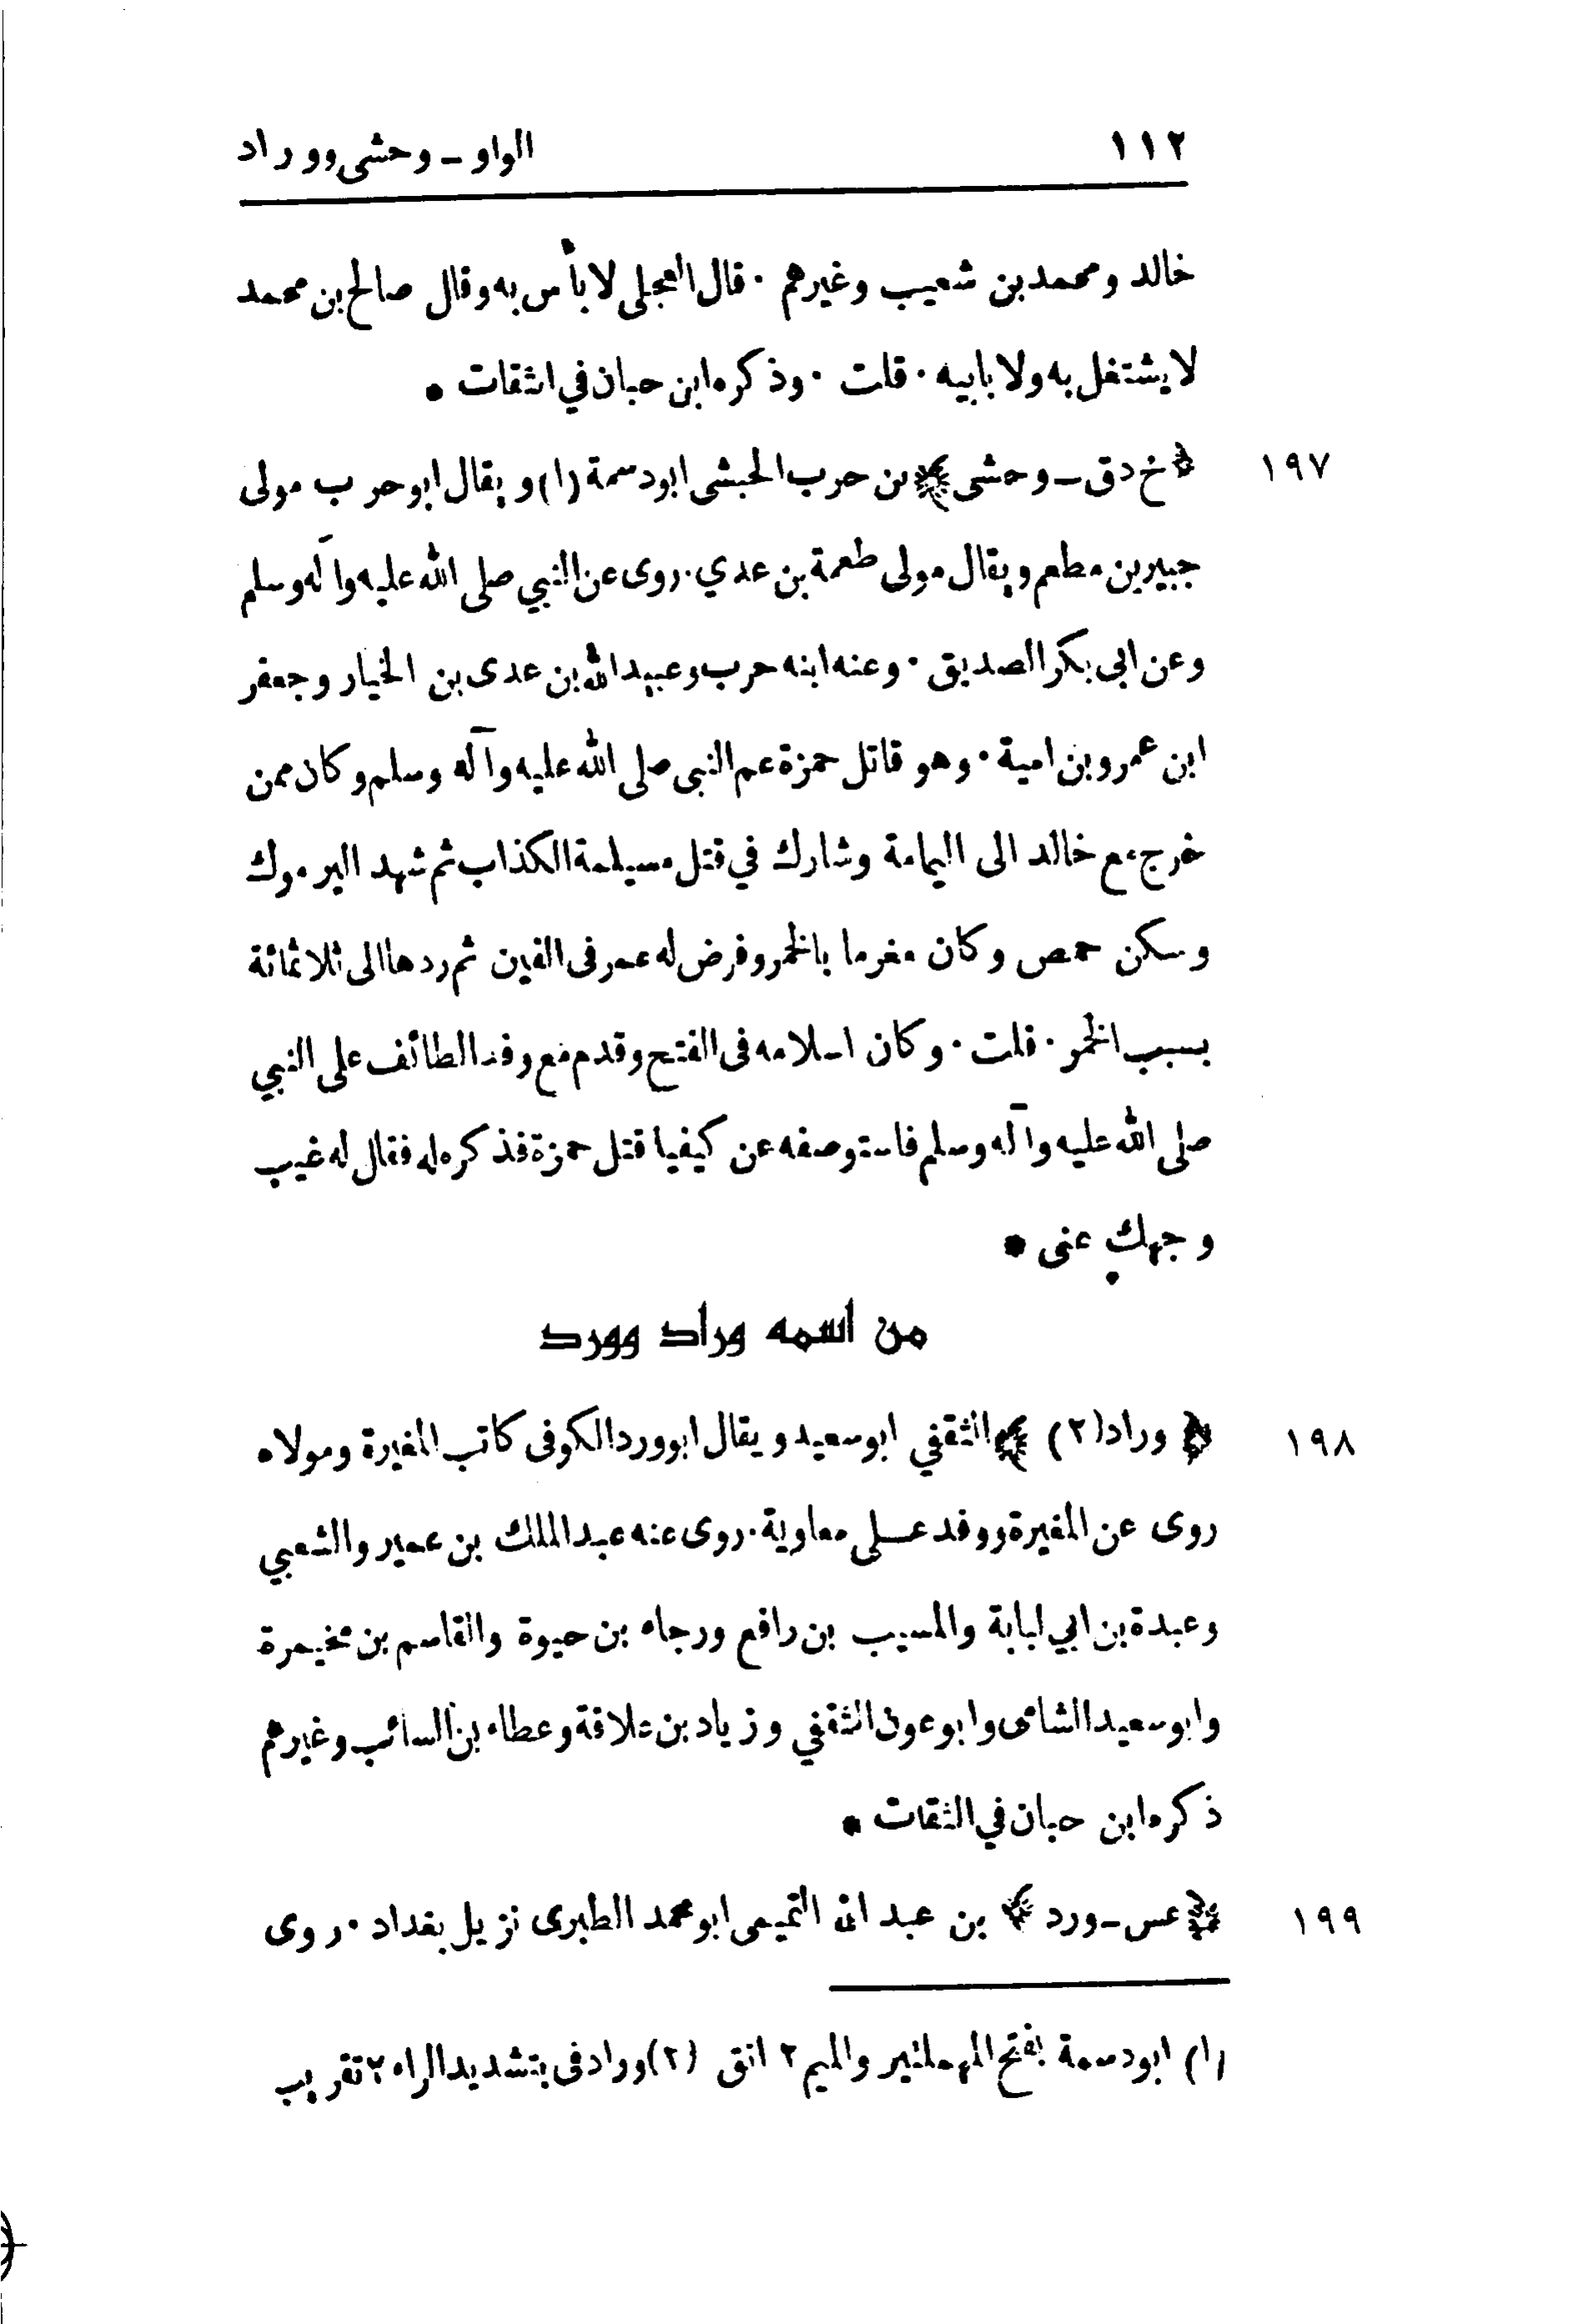 ١١٢ الواو – وحشى ووراد
خالد ومحمد بن شعيب وغيرهم · قال العجلى لا بأس به وقال صالح بن محمد
لا يشتغل به ولا بابيه · قلت · وذكره ابن حبان في الثقات *
١٩٧ ﴿ خ د ق – وحشى ﴾ بن حرب الحبشى ابو دسمة (١) ويقال ابو حرب مولى
جبير بن مطعم ويقال مولى طعمة بن عدي · روى عن النبي صلى الله عليه وآله وسلم
وعن ابى بكر الصديق · وعنه ابنه حرب وعبيد الله بن عدى بن الخيار وجعفر
ابن عمرو بن امية · وهو قاتل حمزة عم النبى صلى الله عليه وآله وسلم وكان ممن
خرج مع خالد الى اليمامة وشارك في قتل مسيلمة الكذاب ثم شهد اليرموك
وسكن حمص وكان مغرما بالخمر وفرض له عمر فى الفين ثم ردها الى ثلاثمائة
بسبب الخمر · قلت · وكان اسلامه فى الفتح وقدم مع وفد الطائف على النبي
صلى الله عليه وآله وسلم فاستوصفه عن كيفيا قتل حمزة فذكره له فقال له غيب
وجهك عنى *
من اسمه وراد وورد
١٩٨ ﴿ وراد (٢) ﴾ الثقفي ابو سعيد ويقال ابو ورد الكوفى كاتب المغيرة ومولاه
روى عن المغيرة ووفد على معاوية · روى عنه عبد الملك بن عمير والشعبي
وعبدة بن ابي لبابة والمسيب بن رافع ورجاء بن حيوة والقاسم بن مخيمرة
وابو سعيد الشامى وابو عون الثقفي وزياد بن علاقة وعطاء بن السائب وغيرهم
ذكره ابن حبان في الثقات *
١٩٩ ﴿ عس – ورد ﴾ بن عبد الله التميمى ابو محمد الطبرى نزيل بغداد · روى
(١) ابو دسمة بفتح المهملتين والميم ١٢ (٢) وراد بتشديد الراء ١٢ تقريب